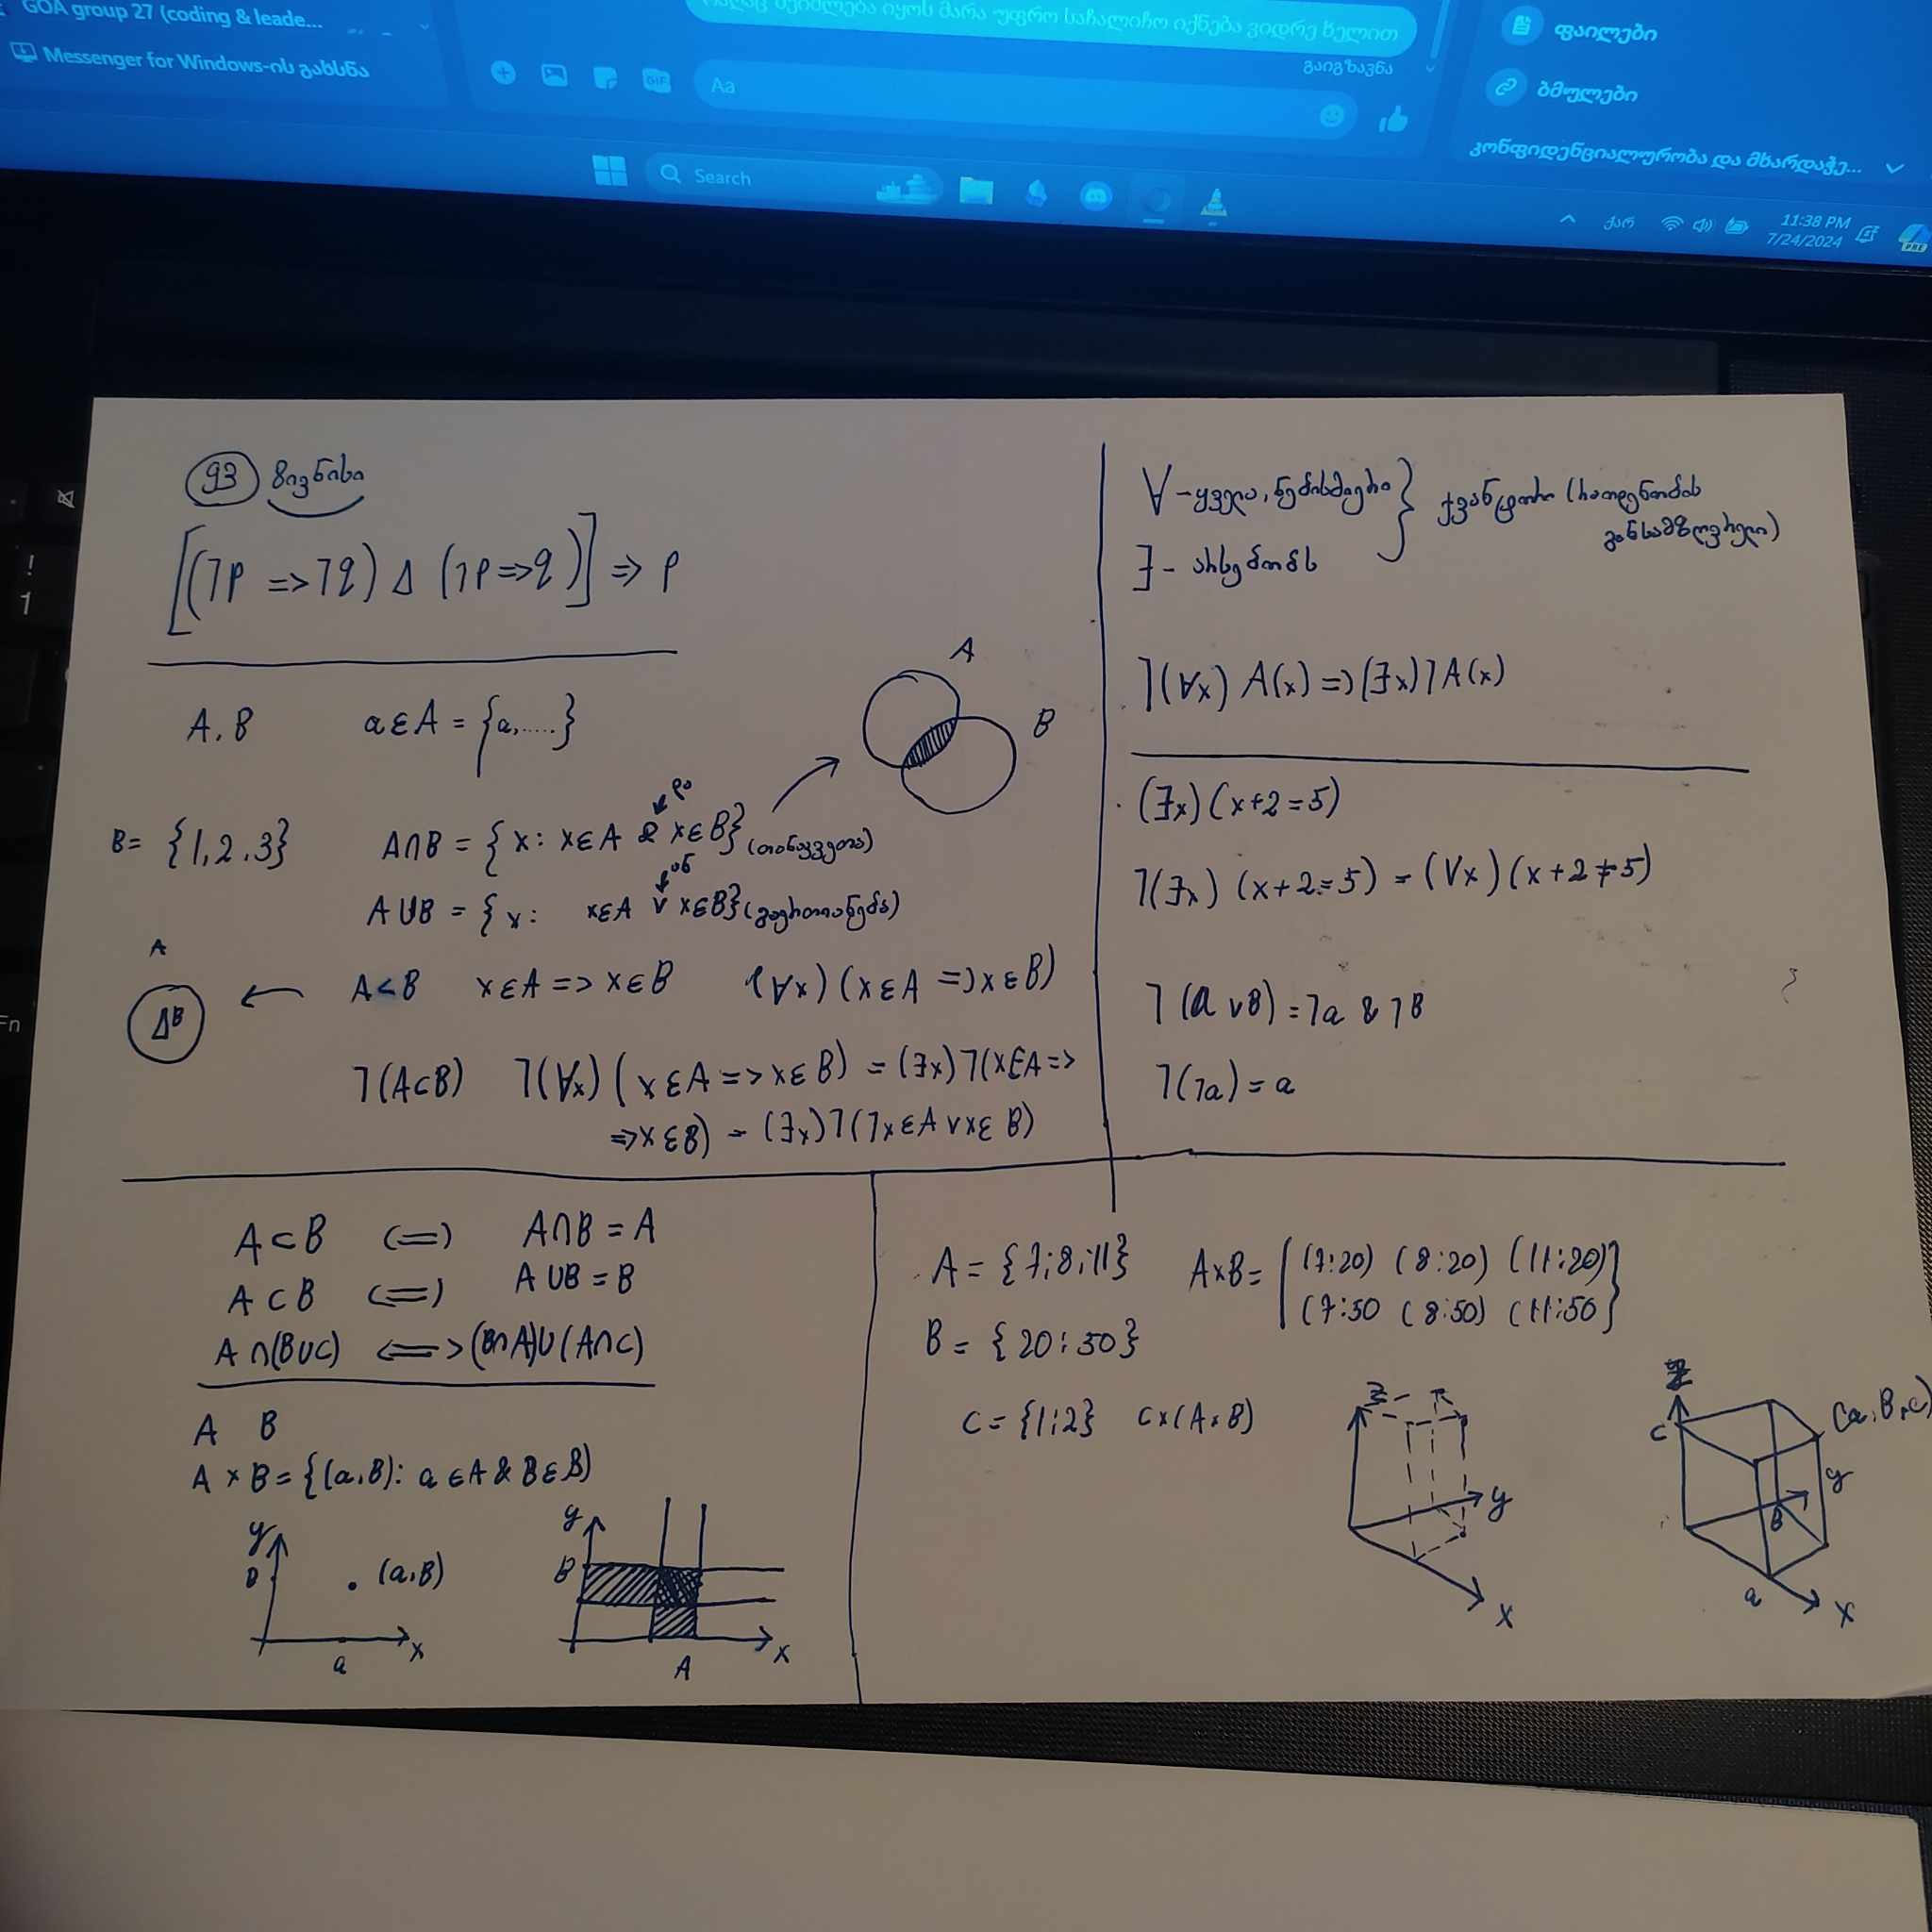 GOA group 27 (coding & leade...
Messenger for Windows-ის გახსნა
შეიძლება იყოს მარა უფრო საჩალიჩო იქნება ვიდრე ხელით
გაიგზავნა
GIF
Aa
ფაილები
ბმულები
კონფიდენციალურობა და მხარდაჭე...
Search
ქარ
11:38 PM
7/24/2024
PRE
!
1
Fn
93 ზივნისი
[(⅂p => ⅂q) Δ (⅂p => q)] => p
A, B a ∈ A = {a, .....}
A
B
B = {1, 2, 3}
და
A∩B = { x : x∈A & x∈B} (თანაკვეთა)
ან
A∪B = { x : x∈A v x∈B} (გაერთიანება)
A
B
A⊂B x∈A => x∈B (∀x) (x∈A => x∈B)
⅂(A⊂B) ⅂(∀x) (x∈A => x∈B) = (∃x)⅂(x∈A =>
=> x∈B) = (∃x)⅂(⅂x∈A v x∈B)
∀ - ყველა, ნებისმიერი } ქვანტორი (რაოდენობის
განსამზღვრელი)
∃ - არსებობს
⅂(∀x) A(x) => (∃x)⅂A(x)
(∃x) (x+2=5)
⅂(∃x) (x+2=5) = (∀x) (x+2≠5)
⅂(a v B) = ⅂a & ⅂B
⅂(⅂a) = a
A⊂B <=> A∩B = A
A⊂B <=> A∪B = B
A∩(B∪C) <=> (B∩A)∪(A∩C)
A B
A × B = {(a, B): a∈A & B∈B)
y
B
(a, B)
a
x
y
B
A
x
A = {7; 8; 11} A×B = { (7;20) (8;20) (11;20)
(7;50 (8;50) (11;50 }
B = { 20; 50}
C = {1; 2} C×(A×B)
z
y
x
z
C
(a, B, c)
y
B
a
x